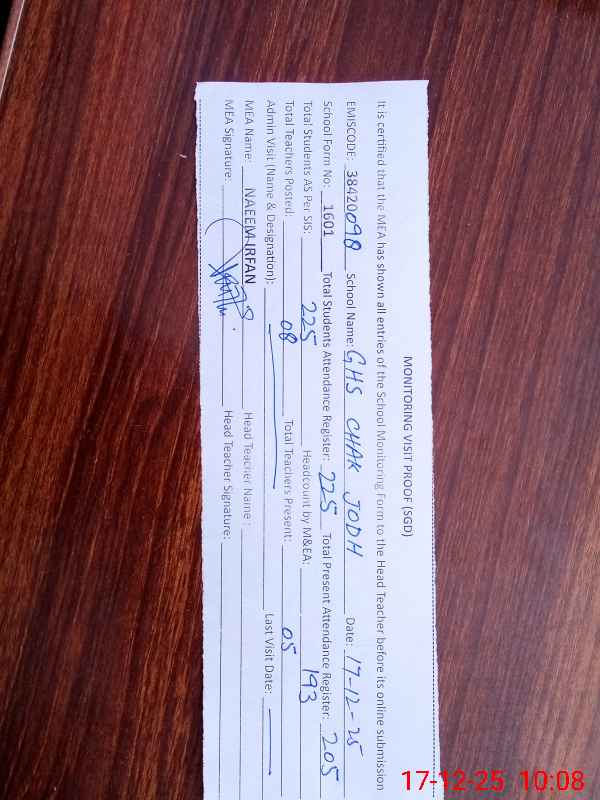 MONITORING VISIT PROOF (SGD)
It is certified that the MEA has shown all entries of the School Monitoring Form to the Head Teacher before its online submission
EMISCODE: 38420098 School Name: GHS CHAK JODH Date: 17-12-25
School Form No: 1601 Total Students Attendance Register: 225 Total Present Attendance Register: 205
Total Students AS Per SIS: 225 Headcount by M&EA: 193
Total Teachers Posted: 08 Total Teachers Present: 05
Admin Visit (Name & Designation): Last Visit Date:
MEA Name: NAEEM IRFAN Head Teacher Name :
MEA Signature: Head Teacher Signature:
17-12-25 10:08